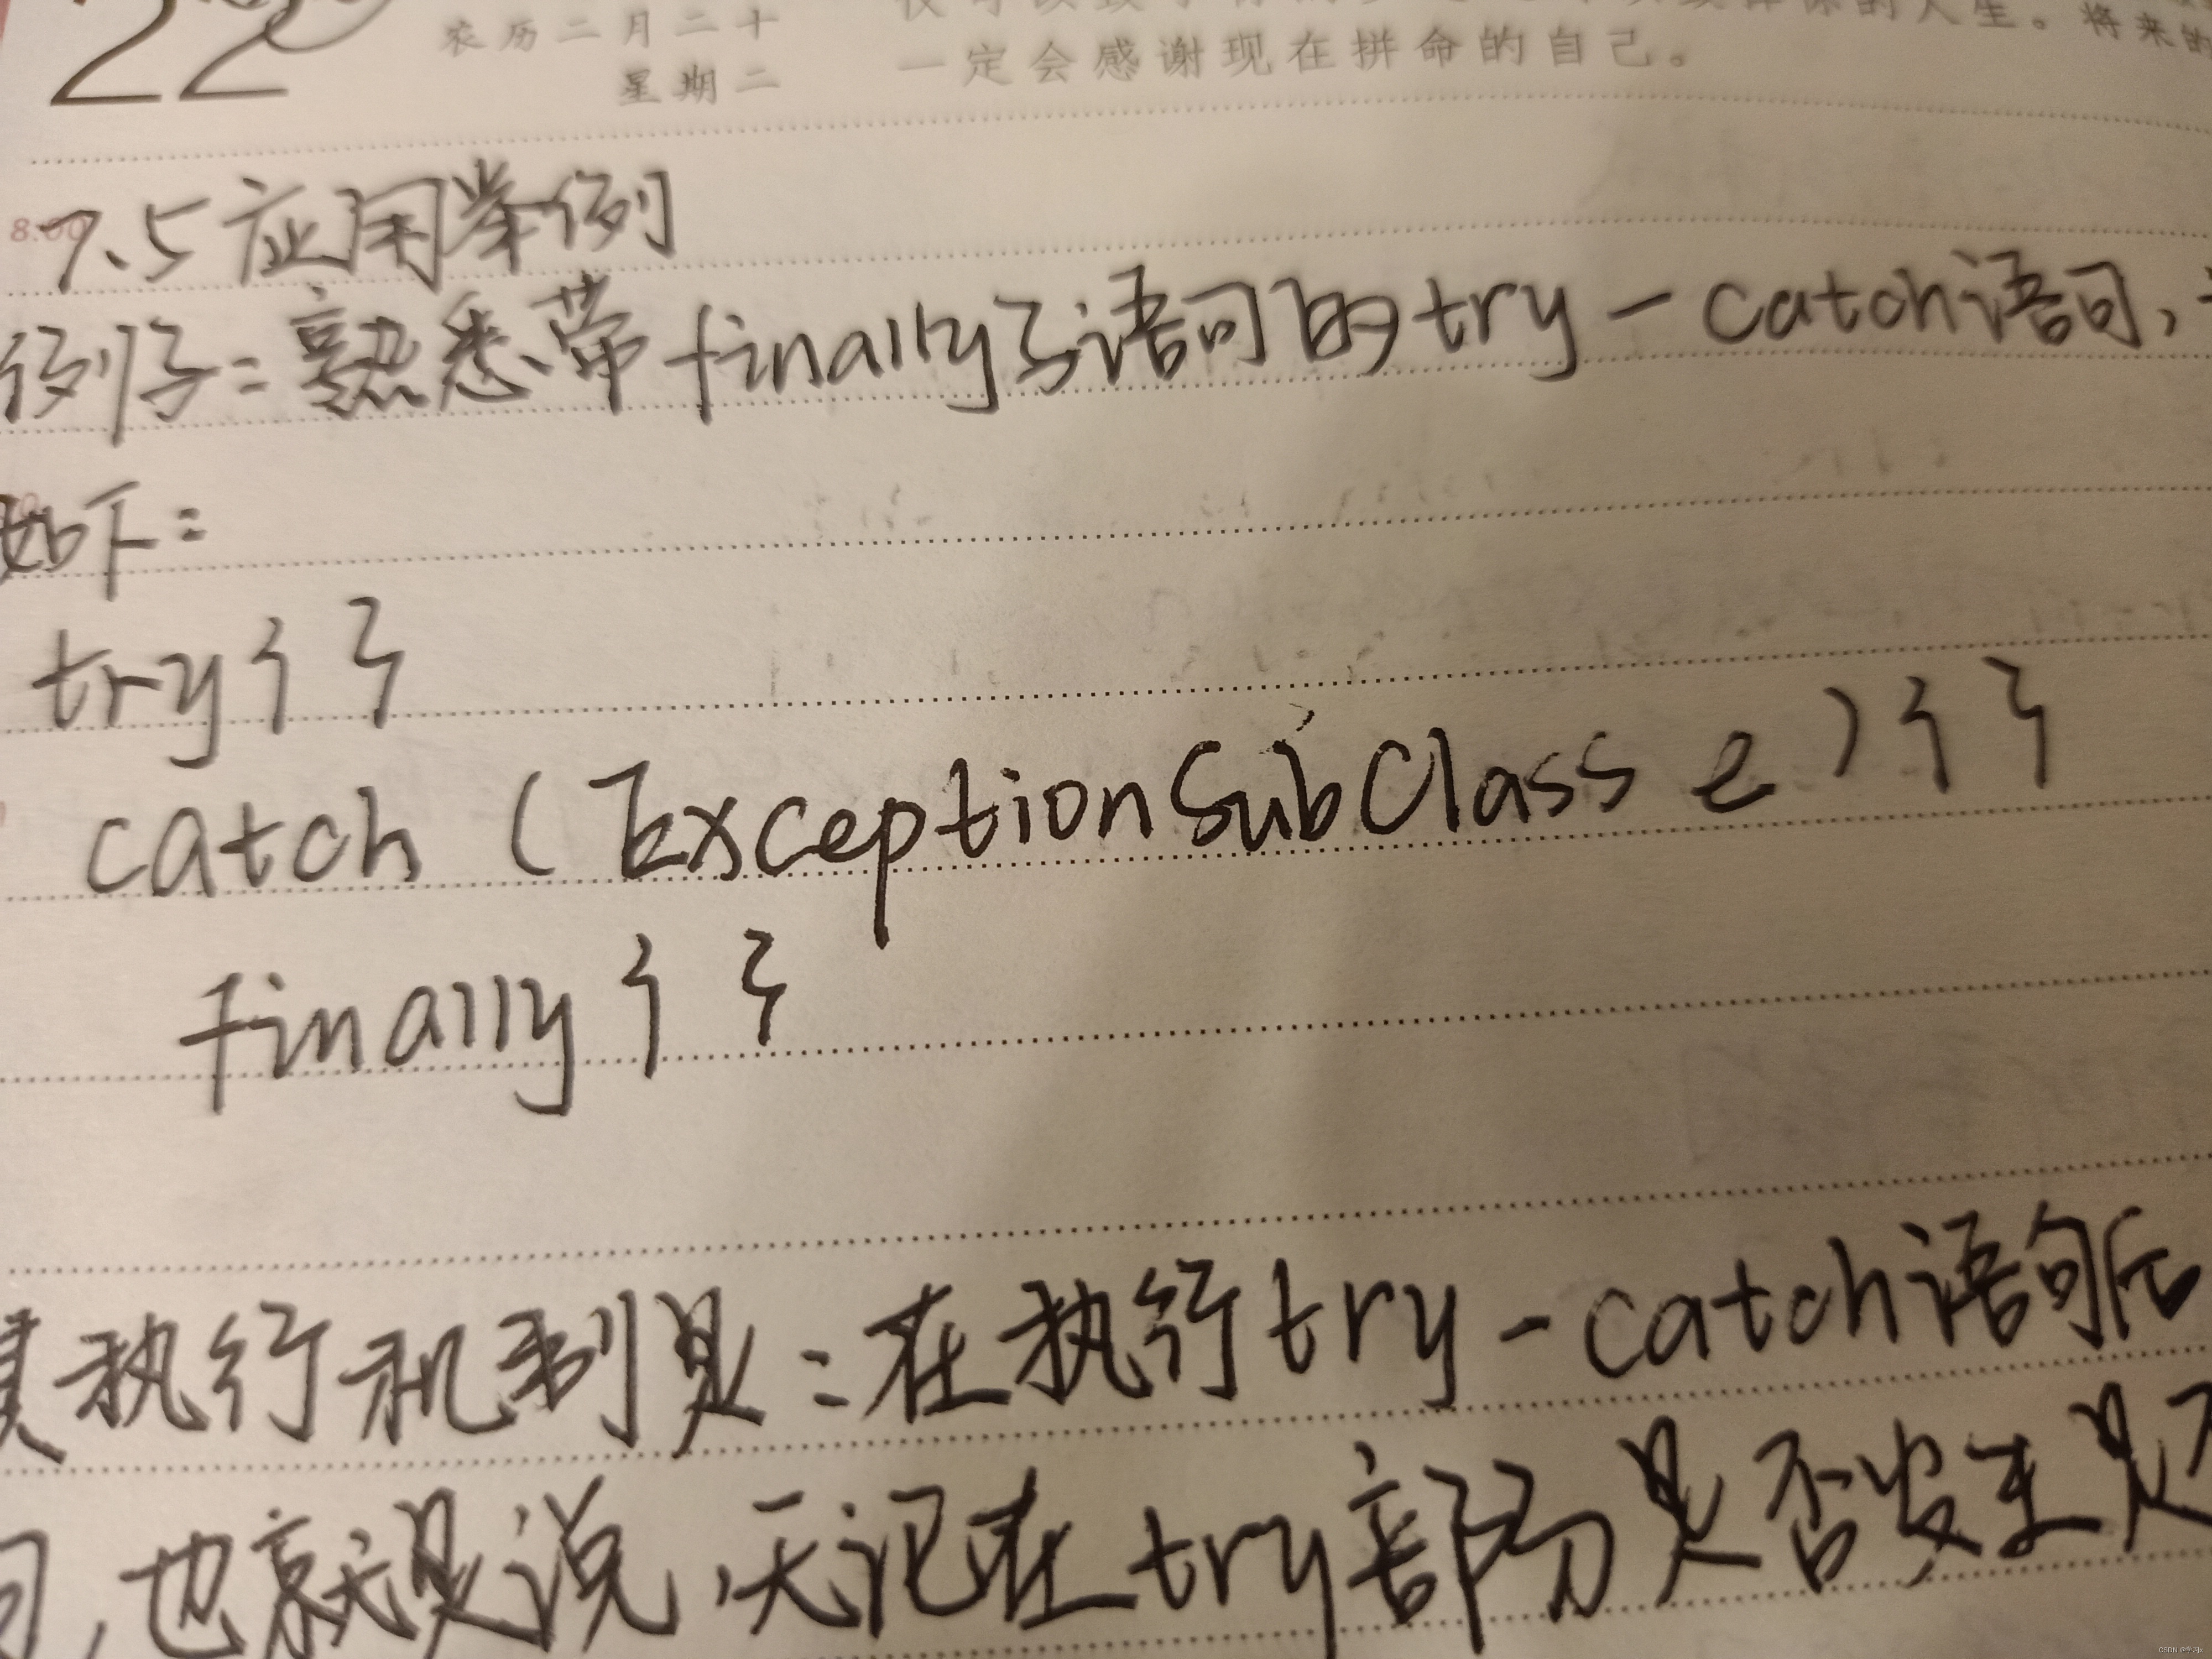 22
农历二月二十
星期二
人生。将来的
一定会感谢现在拼命的自己。
8:00
7.5应用举例
例子:熟悉带finally子语句的try-catch语句,
如下:
try{}
catch (ExceptionSubClass e){}
finally{}
其执行机制是:在执行try-catch语句后
句,也就是说,无论在try部分是否发生是
CSDN @学习x